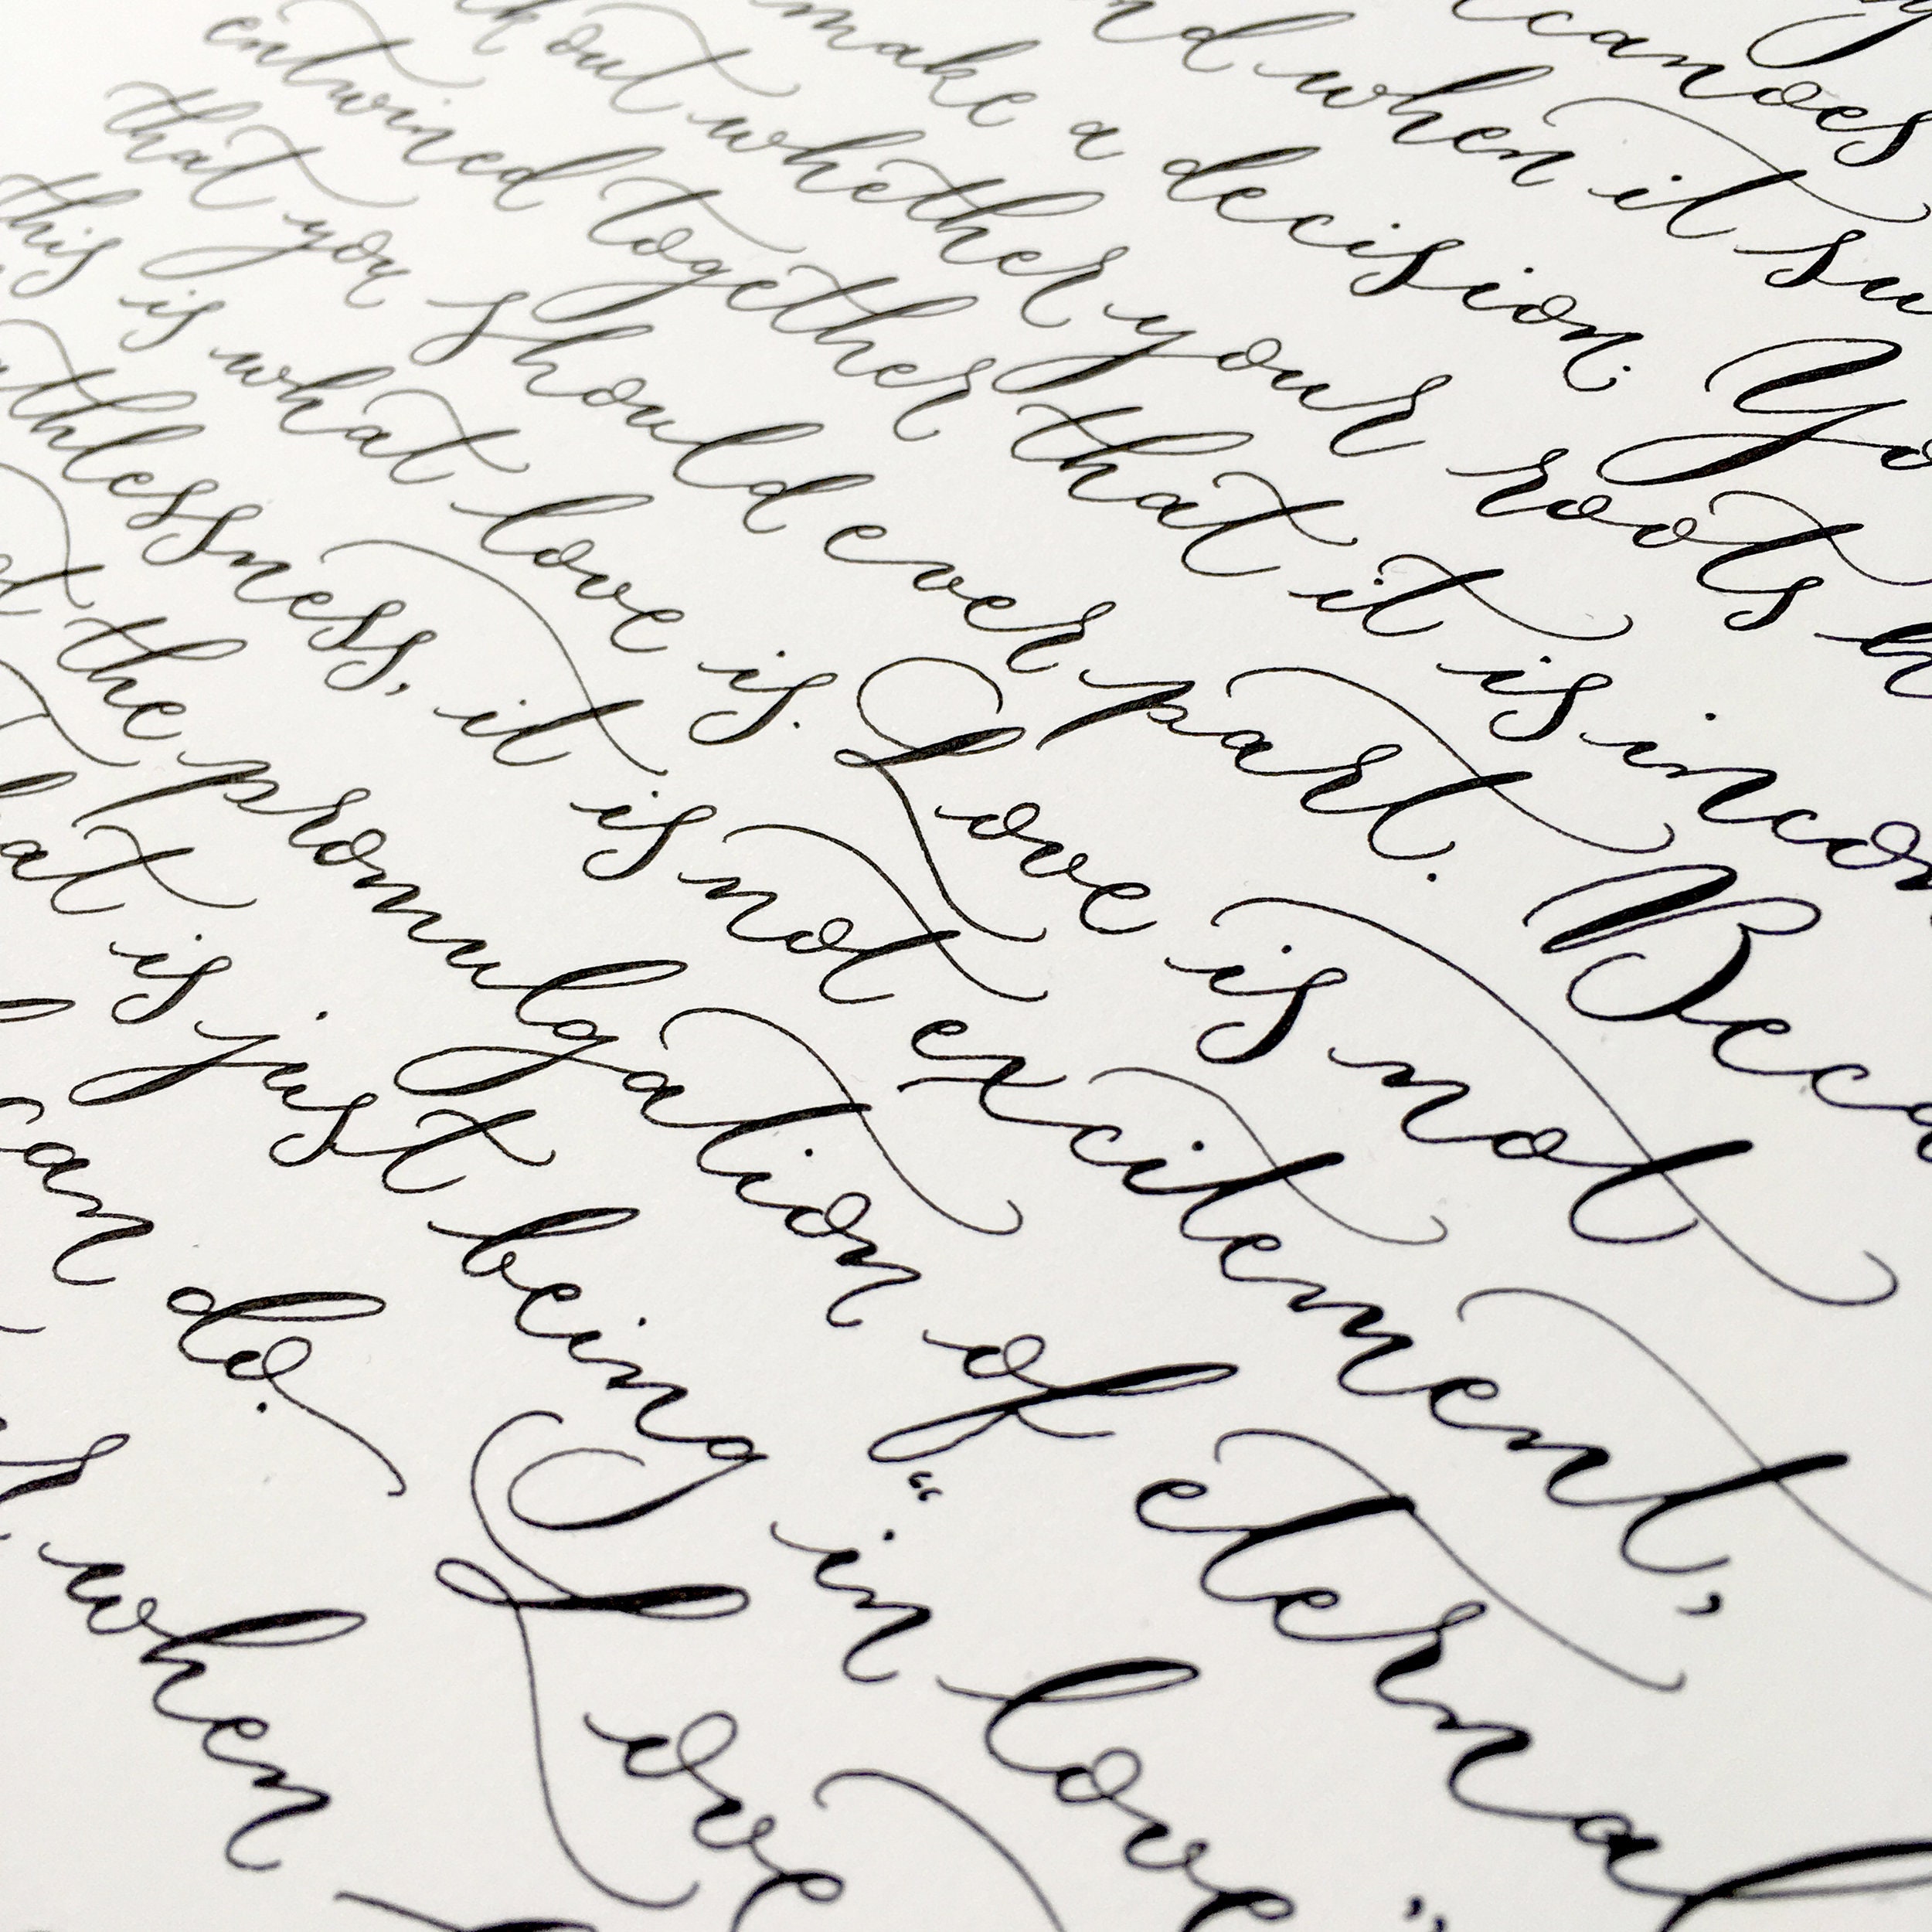 canoes
nd when it su
make a decision. Yo
k out whether your roots h
entwined together that it is incon
that you should ever part. Beca
this is what love is. Love is not
athlessness, it is not excitement,
ot the promulgation of eternal
hat is just being “in love”
can do. Love
when